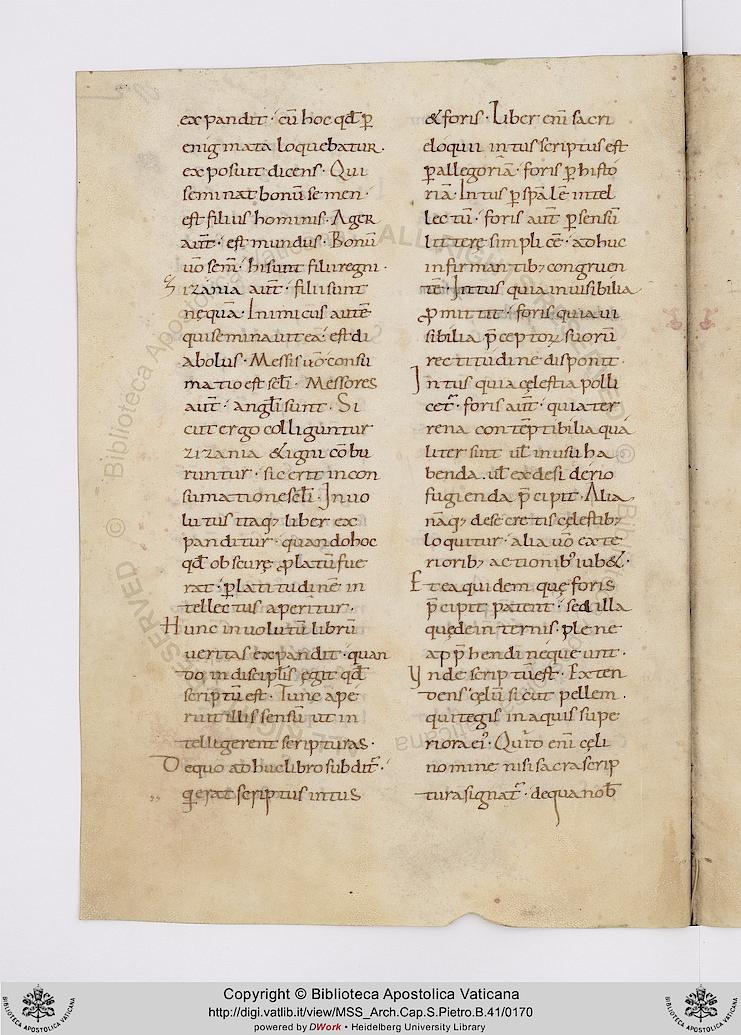 expandit · cū hoc qđ ꝑ
enigmata loquebatur ·
exposuit dicens · Qui
seminat bonū semen ·
est filius hominis · Ager
aūt · est mundus · Bonū
ūo sem̄ · hi sunt filii regni ·
Zizania aūt · filii sunt
nequā · Inimicus autē
qui seminavit ea · est di
abolus · Messis ūo consu
matio est sc̄li · Messores
aūt · angl̄i sunt · Si
cut ergo colliguntur
zizania & igni cōbu
runtur · sic erit in con
sumatione sc̄li · Invo
lutus itaq; liber ex
panditur · quando hoc
qđ obscurę ꝓlatū fue
rat · ꝑ latitudinē in
tellectus aperitur ·
Hunc involutū librū
veritas expandit · quan
do in discipl̄is ęgit qđ
scriptū est · Tunc ape
ruit illis sensū ut in
telligerent scripturas ·
De quo adhuc libro subdit̄ ·
,, qi erat scriptus intus
& foris · Liber enī sacri
eloquii intus scriptus est
ꝑ allegoriā · foris ꝑ histo
riā · Intus ꝑ spālē intel
lectū · foris aūt ꝑ sensū
litterę simplicē · adhuc
infirmantib; congruen
tē · Intus quia invisibilia
ꝓmittit · foris quia vi
sibilia p̄ceptoꝝ suorū
rectitudine disponit ·
Intus quia cęlestia polli
cet̄ · foris aūt · quia ter
rena contēptibilia qua
liter sint ul̄ in usu ha
benda · ul̄ ex desiderio
fugienda p̄cipit · Alia
nāq; de secretis cęlestib;
loquitur · alia ūo exte
riorib; actionib; iub& ·
Et ea quidem quę foris
p̄cipit patent · sed illa
quę de internis · plene
app̄hendi nequeunt ·
Unde scriptū est · Exten
dens cęlū sicut pellem ·
qui tegis in aquis supe
riora ei' · Quid enī cęli
nomine nisi sacra scrip
tura signat̄ · de qua nob̄
Copyright © Biblioteca Apostolica Vaticana
http://digi.vatlib.it/view/MSS_Arch.Cap.S.Pietro.B.41/0170
powered by DWork • Heidelberg University Library